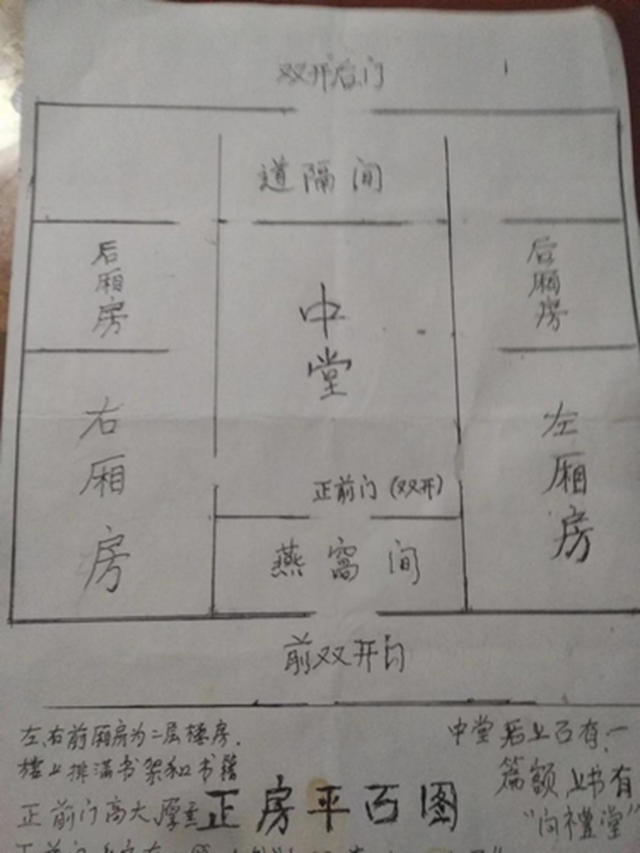 双开后门
道隔间
后厢房
后厢房
中堂
右厢房
左厢房
正前门(双开)
燕窝间
前双开门
左、右前厢房为二层楼房.
楼上排满书架和书籍
正前门高大厚重
中堂后上方有一
篇额上书有
"向禮堂"
正房平面图